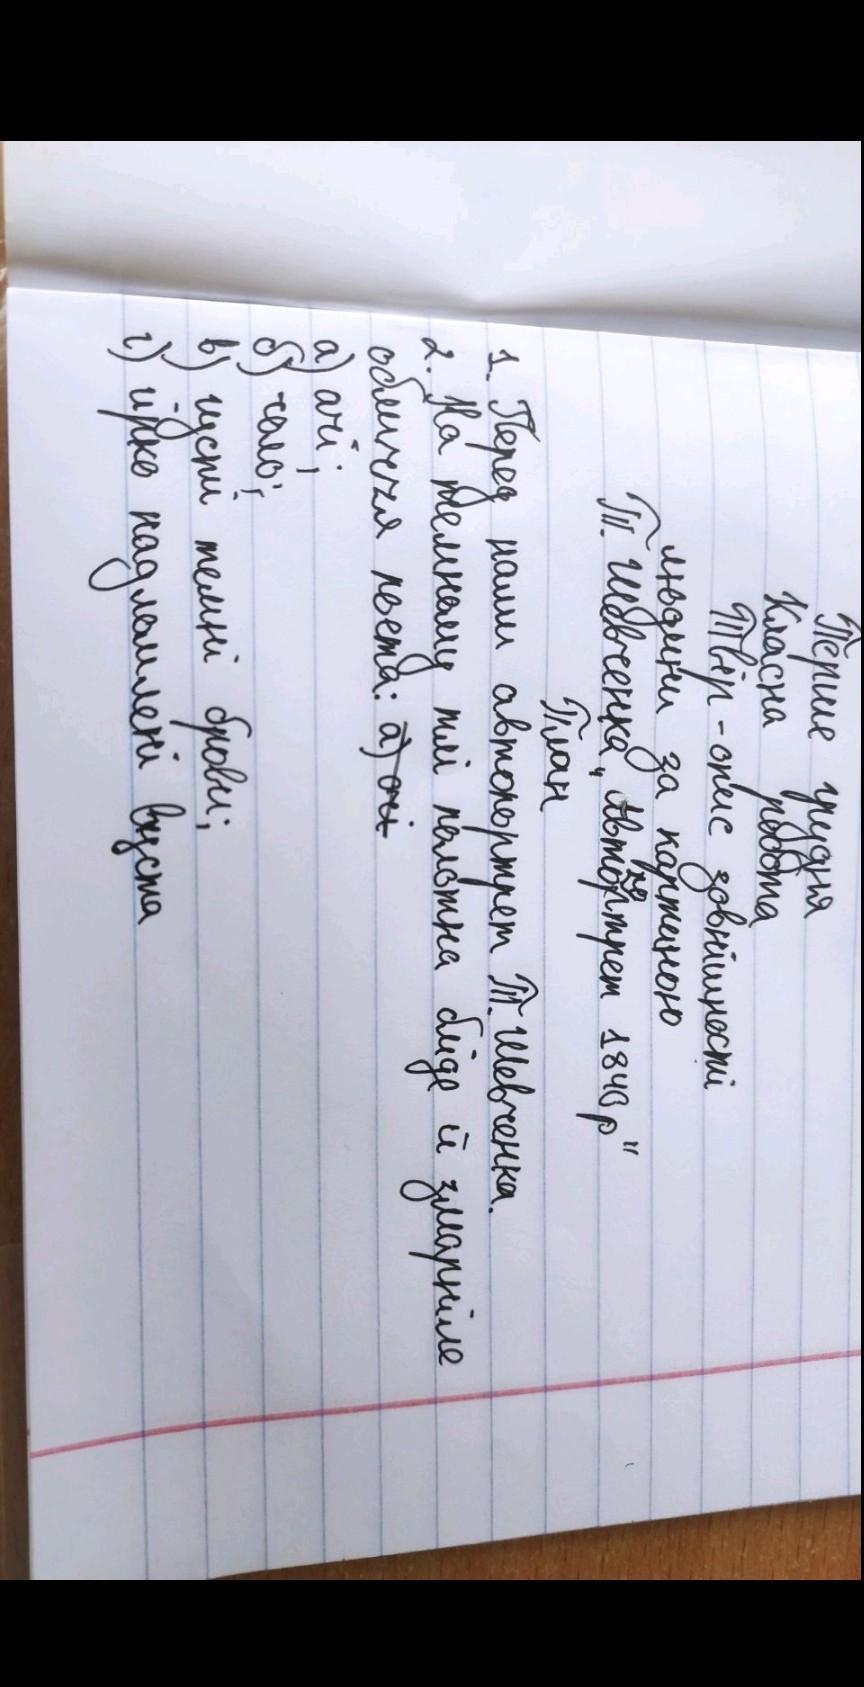 Перше грудня
Класна робота
Твір-опис зовнішності
людини за картиною
Т. Шевченка „Автопортрет 1843 р"
План
1. Перед нами автопортрет Т. Шевченка.
2. На темному тлі полотна бліде й змарніле
обличчя поета: а) очі
а) очі;
б) чоло;
в) густі темні брови;
г) гірко надломлені вуста